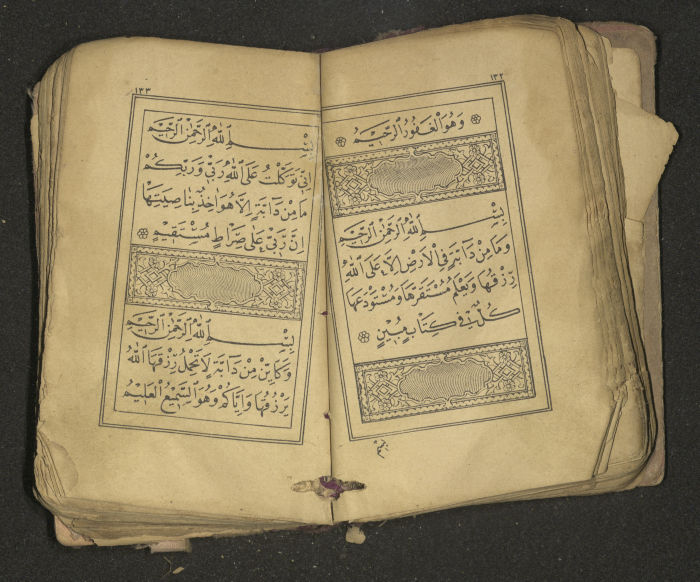 ١٣٢
وَهُوَ الْغَفُورُ الرَّحِيمُ
بِسْمِ اللّٰهِ الرَّحْمٰنِ الرَّحِيمِ
وَمَا مِنْ دَابَّةٍ فِي الْاَرْضِ اِلَّا عَلَى اللّٰهِ
رِزْقُهَا وَيَعْلَمُ مُسْتَقَرَّهَا وَمُسْتَوْدَعَهَا
كُلٌّ فِي كِتَابٍ مُبِينٍ
١٣٣
بِسْمِ اللّٰهِ الرَّحْمٰنِ الرَّحِيمِ
اِنِّي تَوَكَّلْتُ عَلَى اللّٰهِ رَبِّي وَرَبِّكُمْ
مَا مِنْ دَابَّةٍ اِلَّا هُوَ اٰخِذٌ بِنَاصِيَتِهَا
اِنَّ رَبِّي عَلٰى صِرَاطٍ مُسْتَقِيمٍ
بِسْمِ اللّٰهِ الرَّحْمٰنِ الرَّحِيمِ
وَكَاَيِّنْ مِنْ دَابَّةٍ لَا تَحْمِلُ رِزْقَهَا اَللّٰهُ
يَرْزُقُهَا وَاِيَّاكُمْ وَهُوَ السَّمِيعُ الْعَلِيمُ